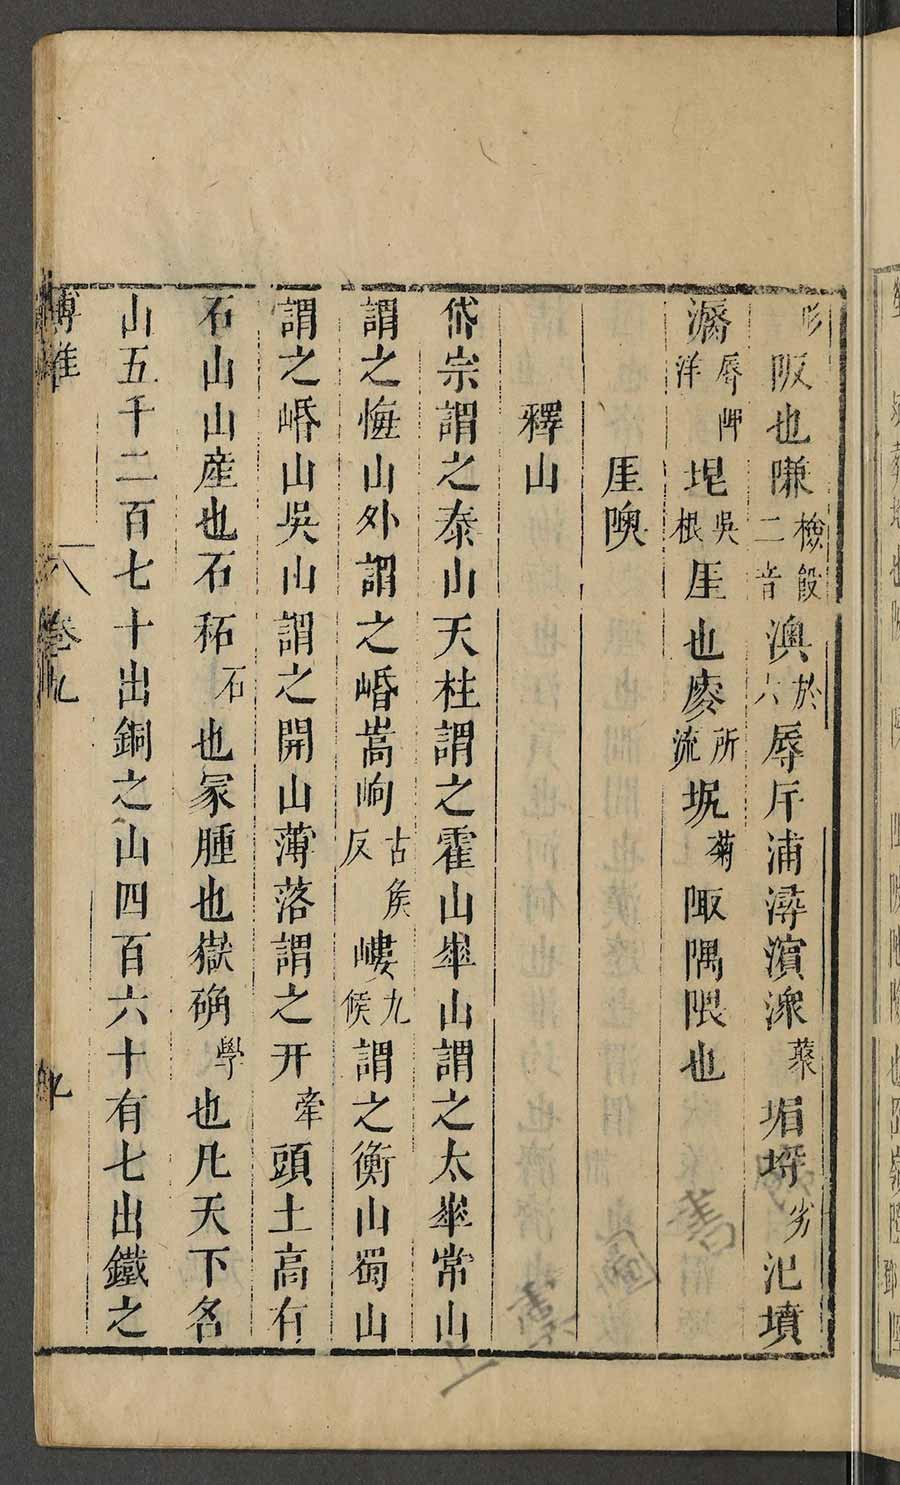 彡阪也隒檢餤二音澳於六厓斥浦潯濱㵗蘂堳埒劣氾墳
漘脣洋岬埤吳根厓也㢑所流坭菊陬隅隈也
厓隩
釋山
岱宗謂之泰山天柱謂之霍山崋山謂之太崋常山
謂之恆山外謂之㟭嵩岣古侯反嶁九候謂之衡山蜀山
謂之㟭山吳山謂之開山薄落謂之幵牽頭土高有
石山山產也石䄷石也冢腫也嶽确學也凡天下名
山五千二百七十出銅之山四百六十有七出鐵之
博雅 卷九 九